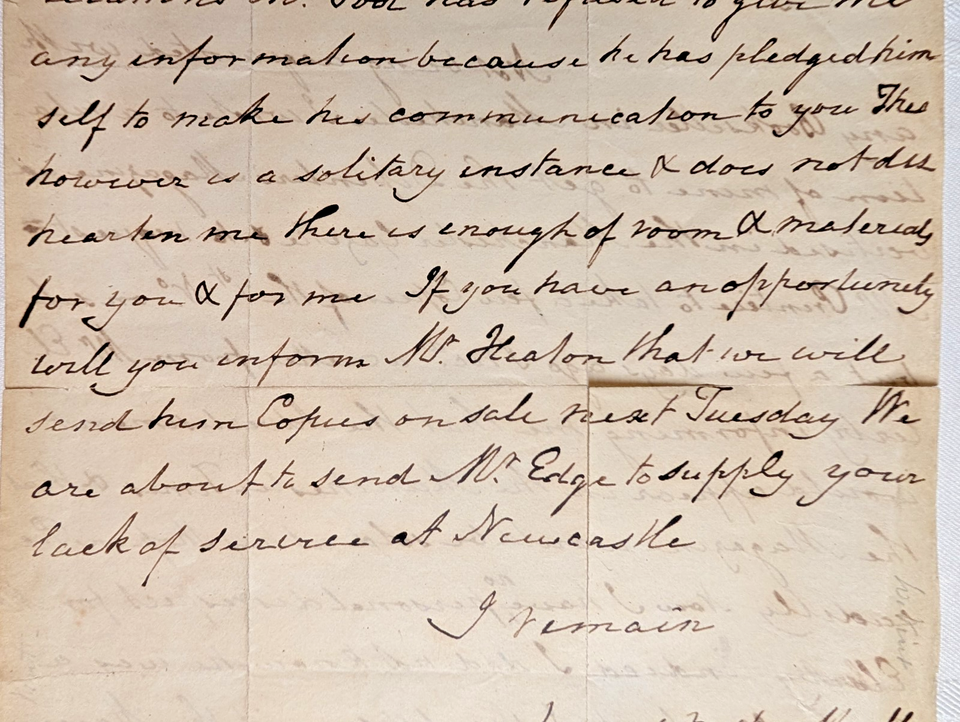 has refused to give me
any information because he has pledged him
self to make his communication to you This
however is a solitary instance & does not dis
hearten me there is enough of room & materials
for you & for me If you have an opportunity
will you inform Mr. Heaton that we will
send him Copies on sale next Tuesday We
are about to send Mr. Edge to supply your
lack of service at Newcastle
I remain